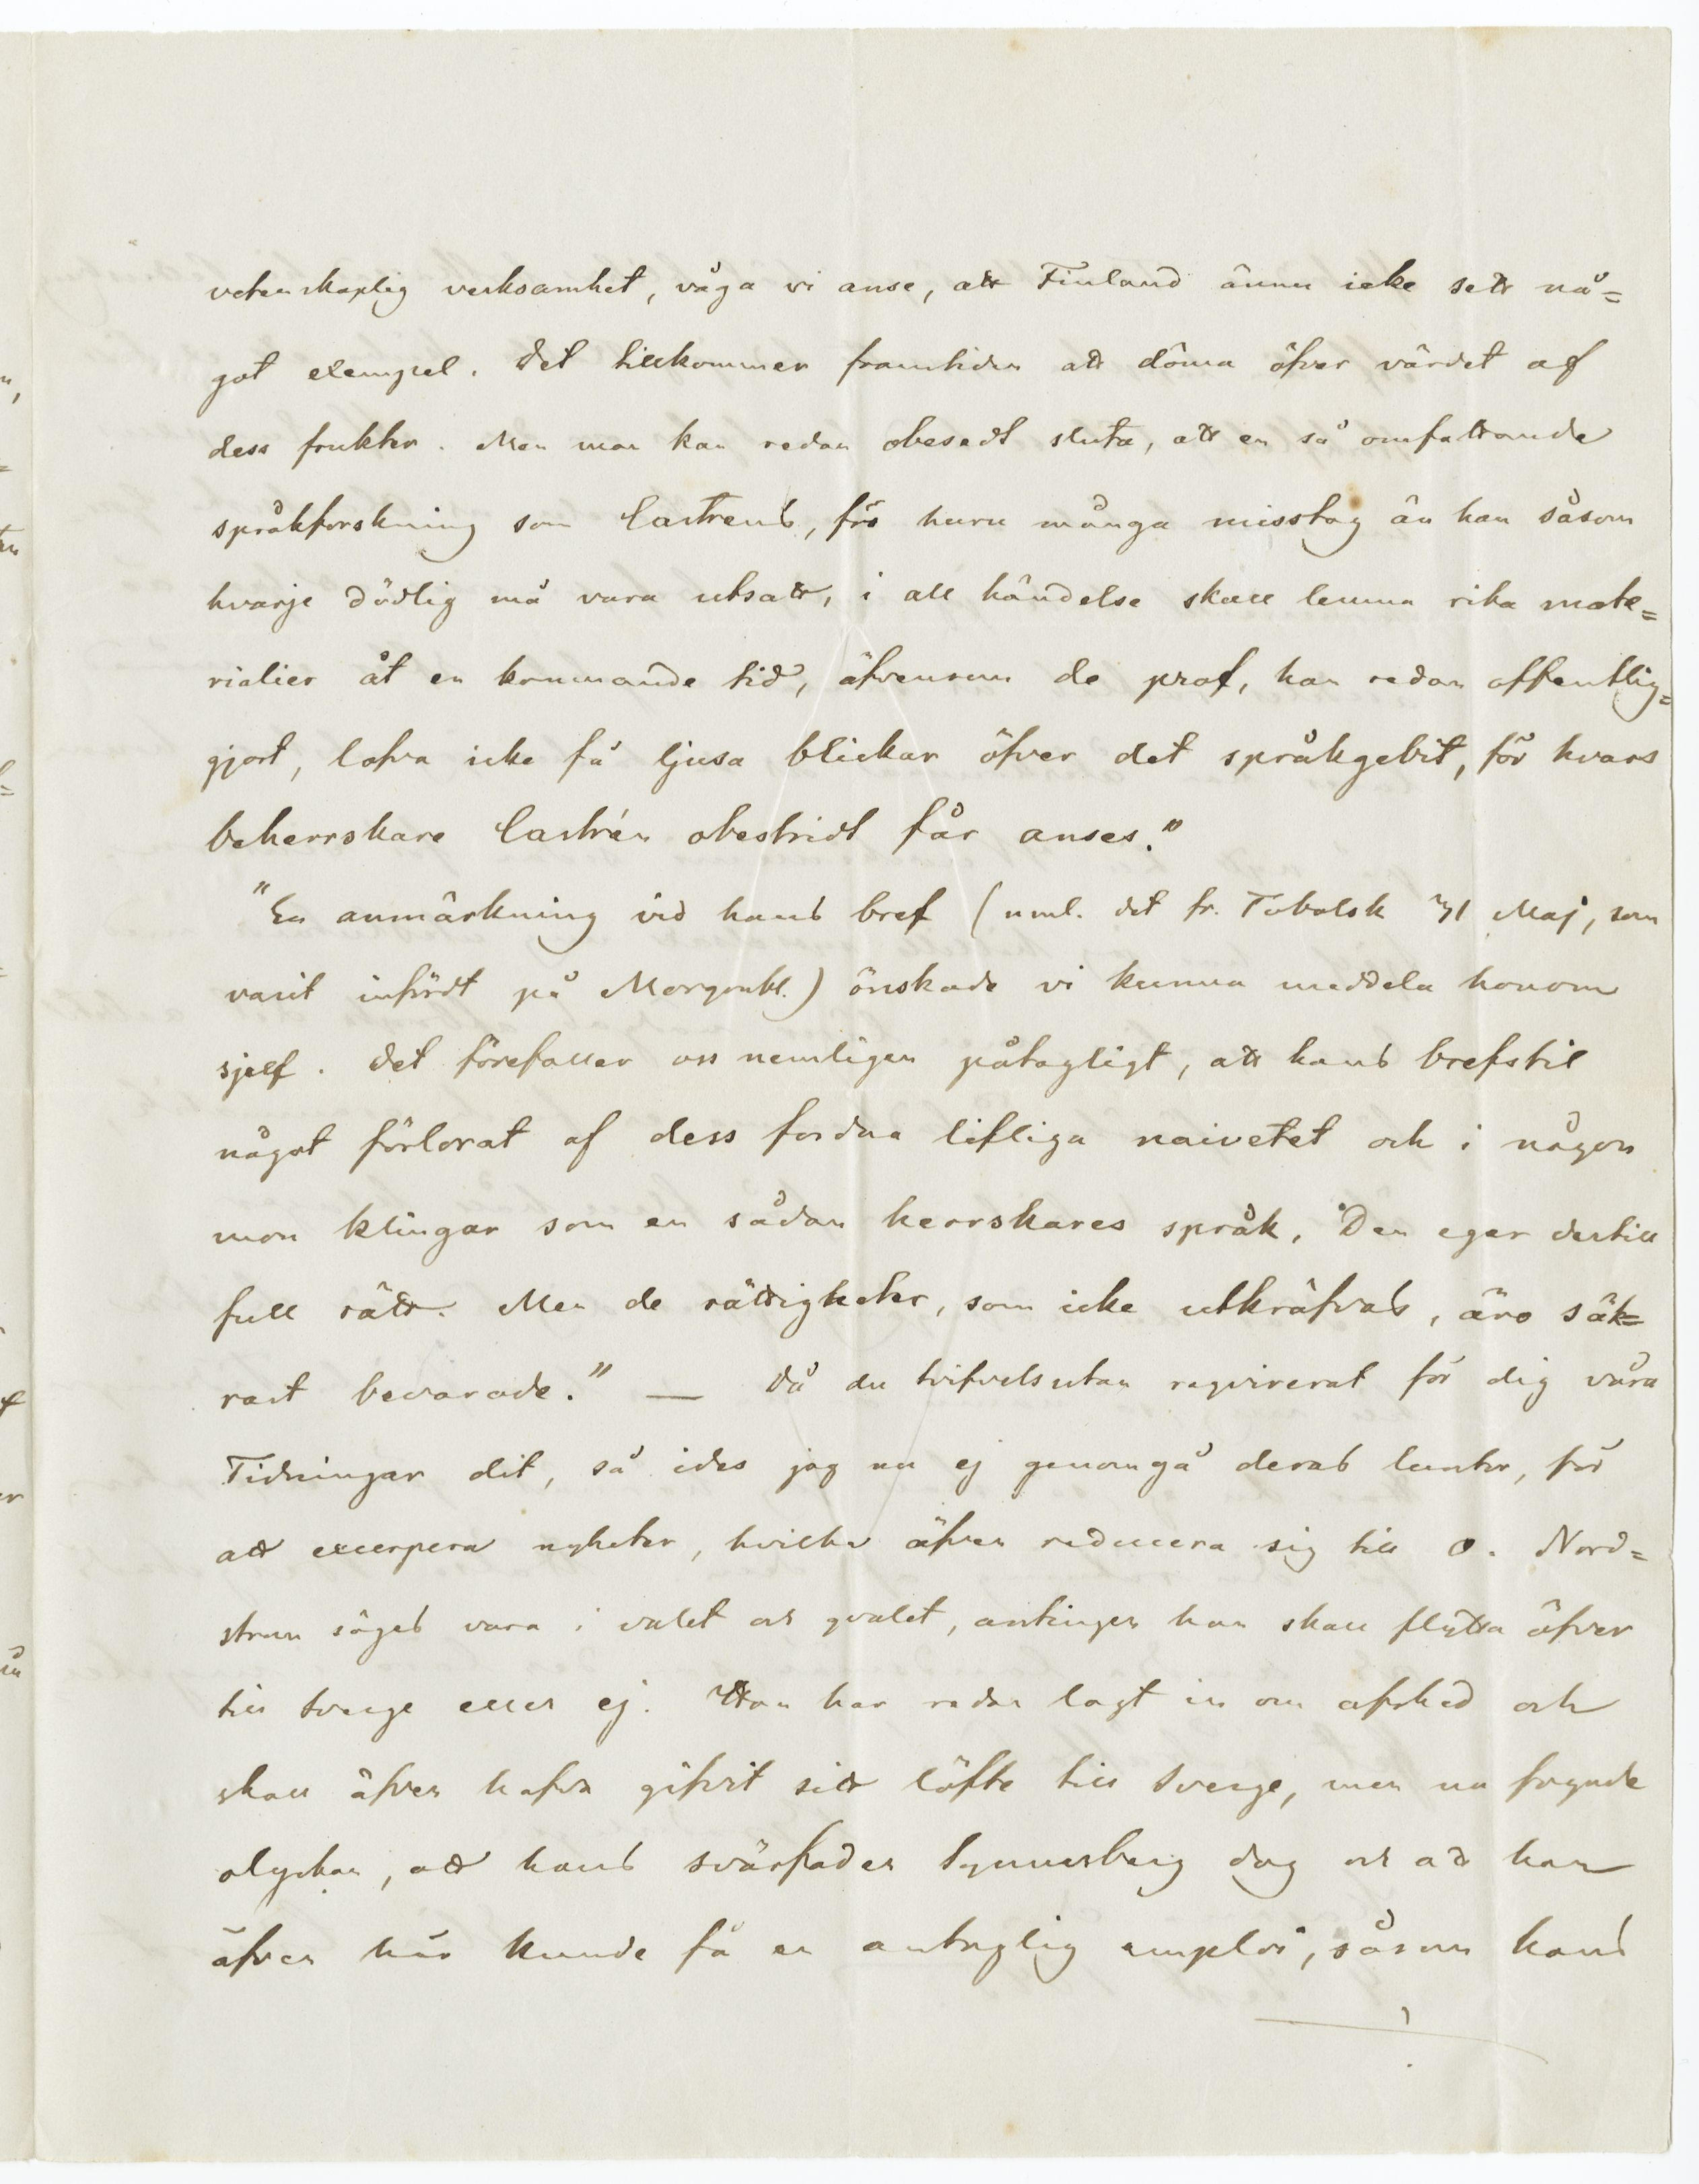 vetenskaplig verksamhet, våga vi anse, att Finland ännu icke sett nå=
got exempel. Det tillkommer framtiden att döma öfver värdet af
dess frukter. Men man kan redan obesedt sluta, att en så omfattande
språkforskning som Castréns, för huru många misstag än han såsom
hvarje dödlig må vara utsatt, i all händelse skall lemna rika mate=
rialier åt en kommande tid, äfvensom de prof, han redan offentlig=
gjort, lofva icke få ljusa blickar öfver det språkgebit, för hvars
beherrskare Castrén obestridt får anses."
"En anmärkning vid hans bref (nml. det fr. Tobolsk Maj, som
varit infördt på Morgonbl.) önskade vi kunna meddela honom
sjelf. Det förefaller oss nemligen påtagligt, att hans brefstil
något förlorat af dess fordna lifliga naivetet och i någon
mon klingar som en sådan herrskares språk. Den eger dertill
full rätt. Men de rättigheter, som icke utkräfvas, äro säk=
rast bevarade." — Då du tvifvelsutan requirerat för dig våra
Tidningar dit, så ides jag nu ej genomgå deras luntor, för
att excerpera nyheter, hvilka äfven reducera sig till 0. Nord=
ström säges vara i valet och qvalet, antingen han skall flytta öfver
till Sverge eller ej. Han har redan lagt in om afsked och
skall äfven hafva gifvit sitt löfte till Sverge, men nu fogade
olyckan, att hans svärfader Synnerberg dog och att han
äfven här kunde få en antaglig emploi, såsom hans